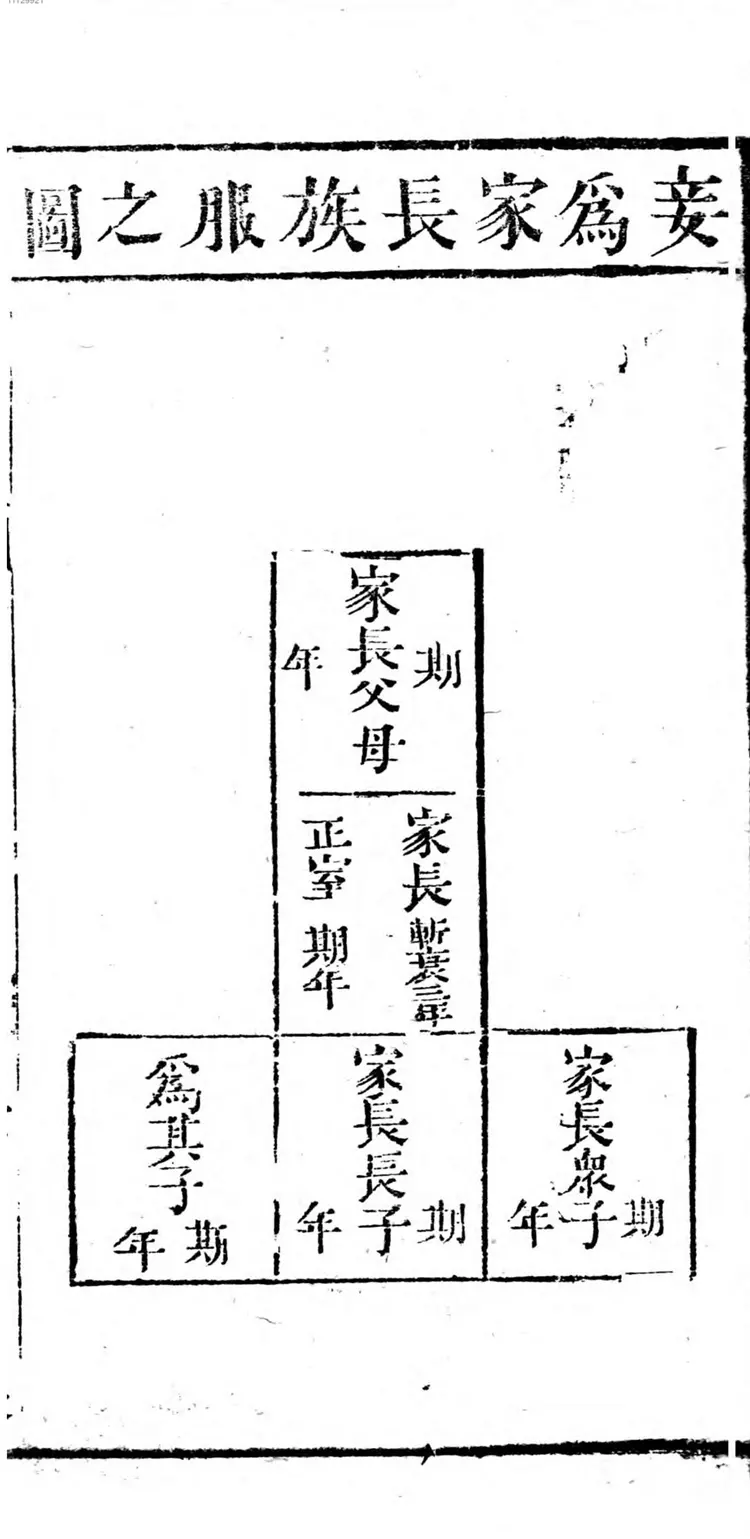 妾爲家長族服之圖
家長父母
期年
家長斬衰三年
正室期年
家長衆子
期年
家長長子
期年
爲其子
期年